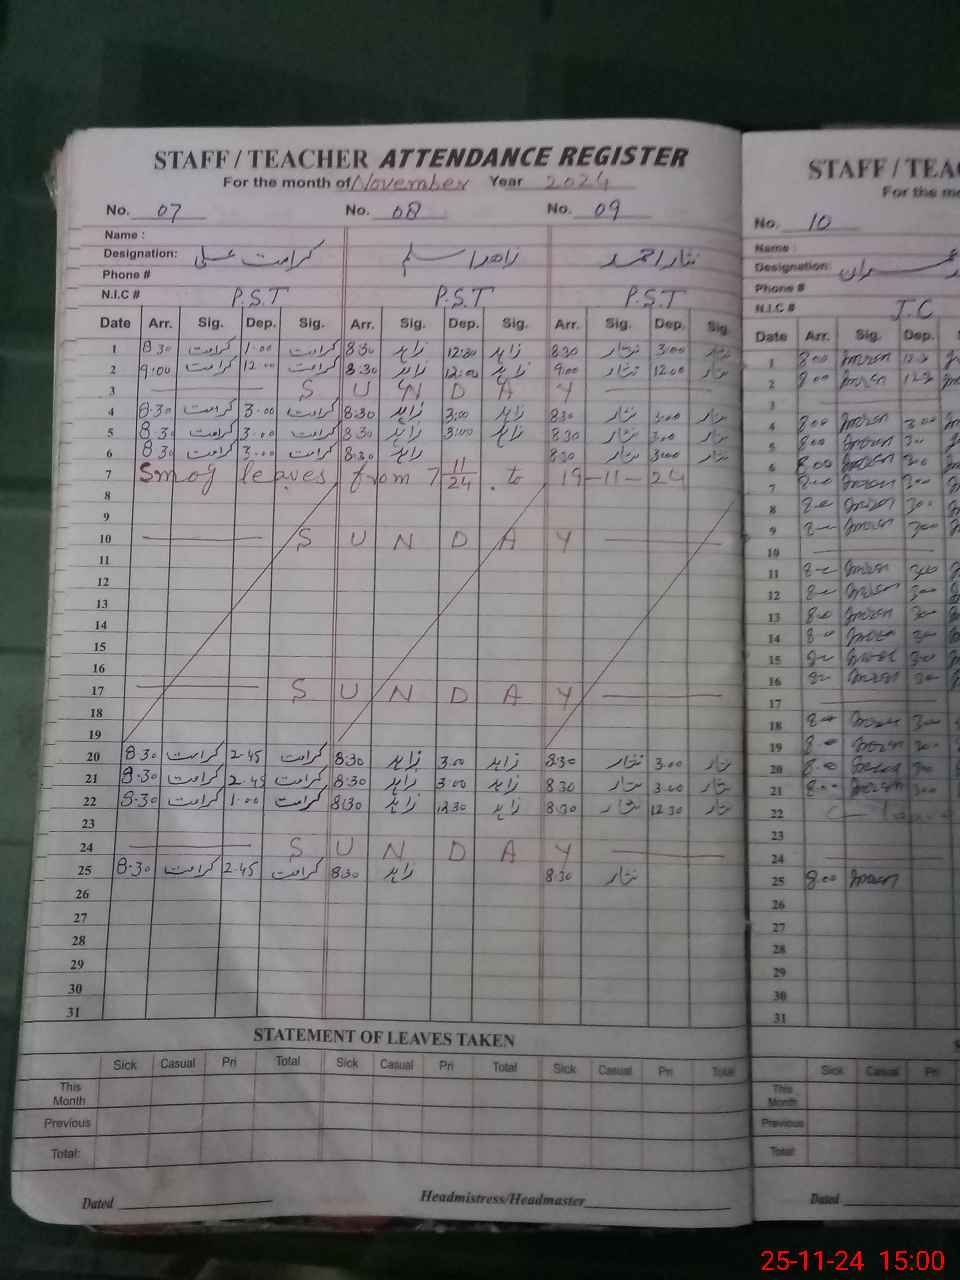 STAFF / TEACHER ATTENDANCE REGISTER
For the month of November Year 2024
No. 07 No. 08 No. 09
Name :
Designation: کرامت علی زاہد اسلم نثار احمد
Phone #
N.I.C # P.S.T P.S.T P.S.T
Date Arr. Sig. Dep. Sig. Arr. Sig. Dep. Sig. Arr. Sig. Dep. Sig.
1 8 30 کرامت 1.00 کرامت 8:30 زاہد 12:30 زاہد 8:30 نثار 3:00 نثار
2 9:00 کرامت 12.00 کرامت 8:30 زاہد 12:00 زاہد 9:00 نثار 12:00 نثار
3 S U N D A Y
4 8.30 کرامت 3.00 کرامت 8:30 زاہد 3:00 زاہد 8:30 نثار 3:00 نثار
5 8.30 کرامت 3.00 کرامت 8:30 زاہد 3:00 زاہد 8:30 نثار 3:00 نثار
6 8.30 کرامت 3.00 کرامت 8:30 زاہد 8:30 نثار 3:00 نثار
7 Smog leaves from 7 11/24 to 19-11-24
8
9
10 S U N D A Y
11
12
13
14
15
16
17 S U N D A Y
18
19
20 8.30 کرامت 2.45 کرامت 8:30 زاہد 3:00 زاہد 8:30 نثار 3.00 نثار
21 8.30 کرامت 2.45 کرامت 8:30 زاہد 3:00 زاہد 8:30 نثار 3.00 نثار
22 8.30 کرامت 1.00 کرامت 8:30 زاہد 12:30 زاہد 8:30 نثار 12:30 نثار
23
24 S U N D A Y
25 8.30 کرامت 2.45 کرامت 8:30 زاہد 8:30 نثار
26
27
28
29
30
31
STATEMENT OF LEAVES TAKEN
Sick Casual Pri Total Sick Casual Pri Total Sick Casual Pri Total
This Month
Previous
Total:
Dated Headmistress/Headmaster
STAFF / TEA
For the mo
No. 10
Name :
Designation:
Phone #
N.I.C # J.C
Date Arr. Sig. Dep.
1 8.00
2 8.00
3
4 8.00 3.00
5 8.00
6 8.00
7
8
9
10
11
12
13
14
15
16
17
18
19
20
21
22
23
24
25 8.00
26
27
28
29
30
31
Sick Casual Pri
This Month
Previous
Total
Dated
25-11-24 15:00